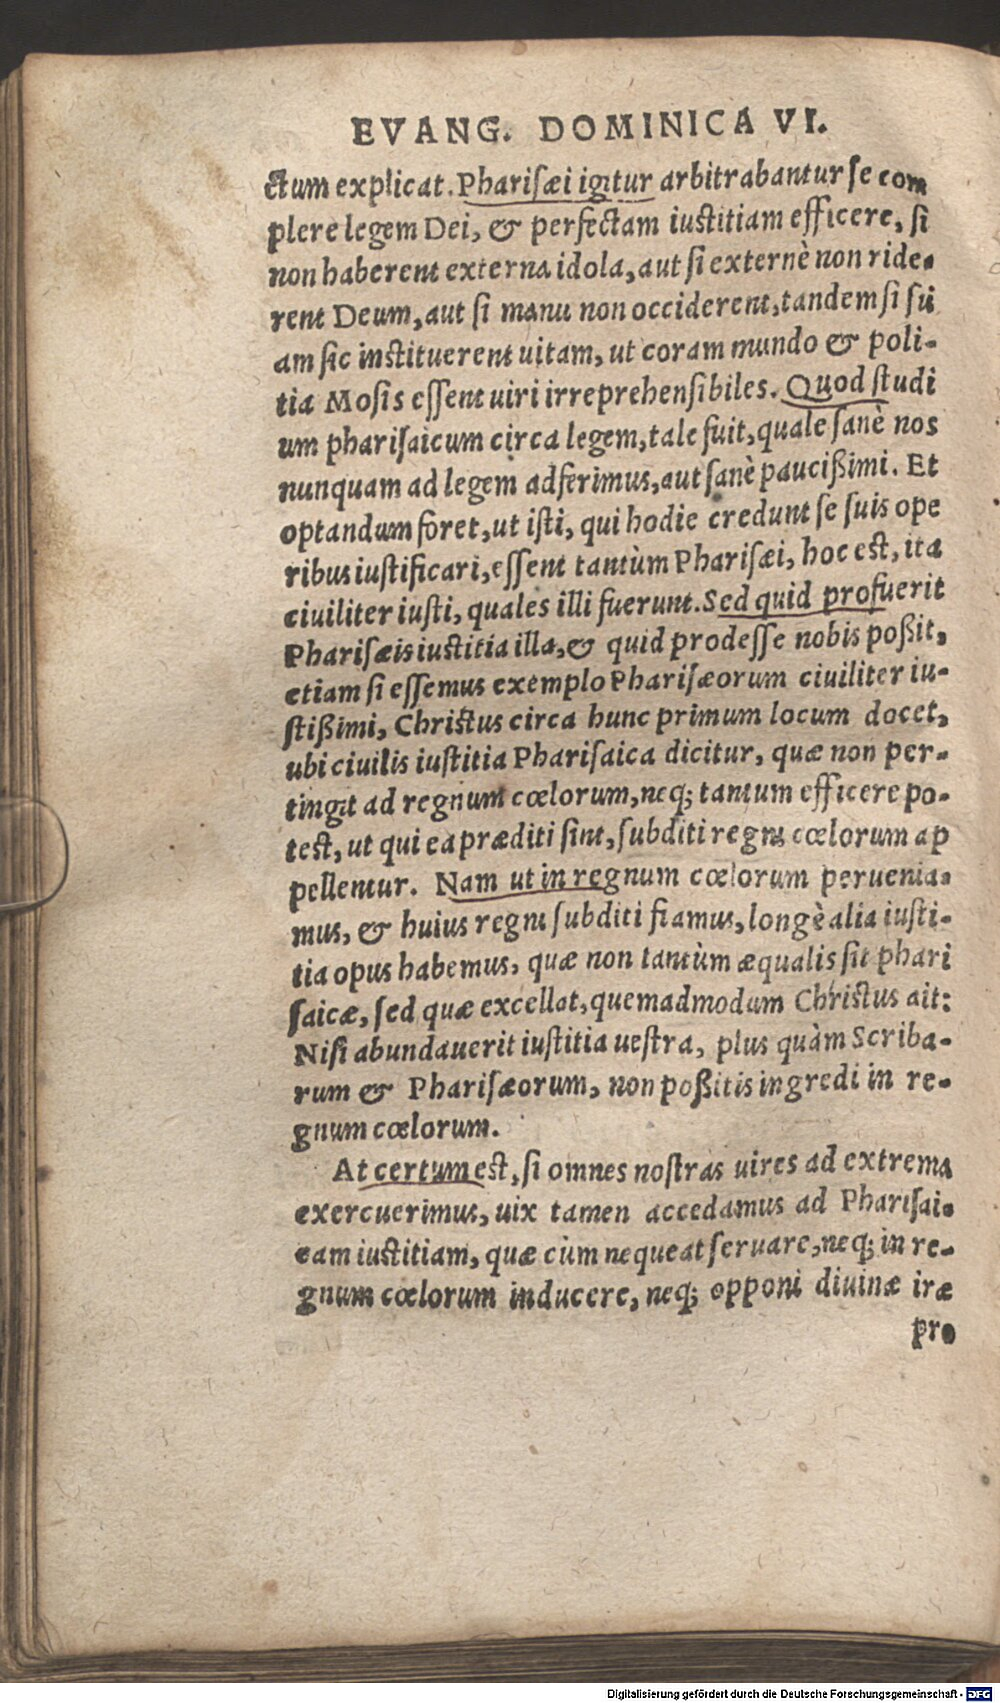 EVANG. DOMINICA VI.
ctum explicat. Pharisæi igitur arbitrabantur se com
plere legem Dei, & perfectam iustitiam efficere, si
non haberent externa idola, aut si externè non ride-
rent Deum, aut si manu non occiderent, tandem si su
am sic instituerent uitam, ut coram mundo & poli-
tia Mosis essent uiri irreprehensibiles. Quod studi
um pharisaicum circa legem, tale fuit, quale sanè nos
nunquam ad legem adferimus, aut sanè paucißimi. Et
optandum foret, ut isti, qui hodie credunt se suis ope
ribus iustificari, essent tantùm Pharisæi, hoc est, ita
ciuiliter iusti, quales illi fuerunt. Sed quid profuerit
Pharisæis iustitia illa, & quid prodesse nobis poßit,
etiam si essemus exemplo Pharisæorum ciuiliter iu-
stißimi, Christus circa hunc primum locum docet,
ubi ciuilis iustitia Pharisaica dicitur, quæ non per-
tingit ad regnum cœlorum, neq; tantum efficere po-
test, ut qui ea præditi sint, subditi regni cœlorum ap
pellentur. Nam ut in regnum cœlorum perueniа-
mus, & huius regni subditi fiamus, longè alia iusti-
tia opus habemus, quæ non tantùm æqualis sit phari
saicæ, sed quæ excellat, quemadmodum Christus ait:
Nisi abundauerit iustitia uestra, plus quàm Scriba-
rum & Pharisæorum, non poßitis ingredi in re-
gnum cœlorum.
At certum est, si omnes nostras uires ad extrema
exercuerimus, uix tamen accedamus ad Pharisai-
eam iustitiam, quæ cùm nequeat seruare, neq; in re-
gnum cœlorum inducere, neq; opponi diuinæ iræ
pro
Digitalisierung gefördert durch die Deutsche Forschungsgemeinschaft - DFG